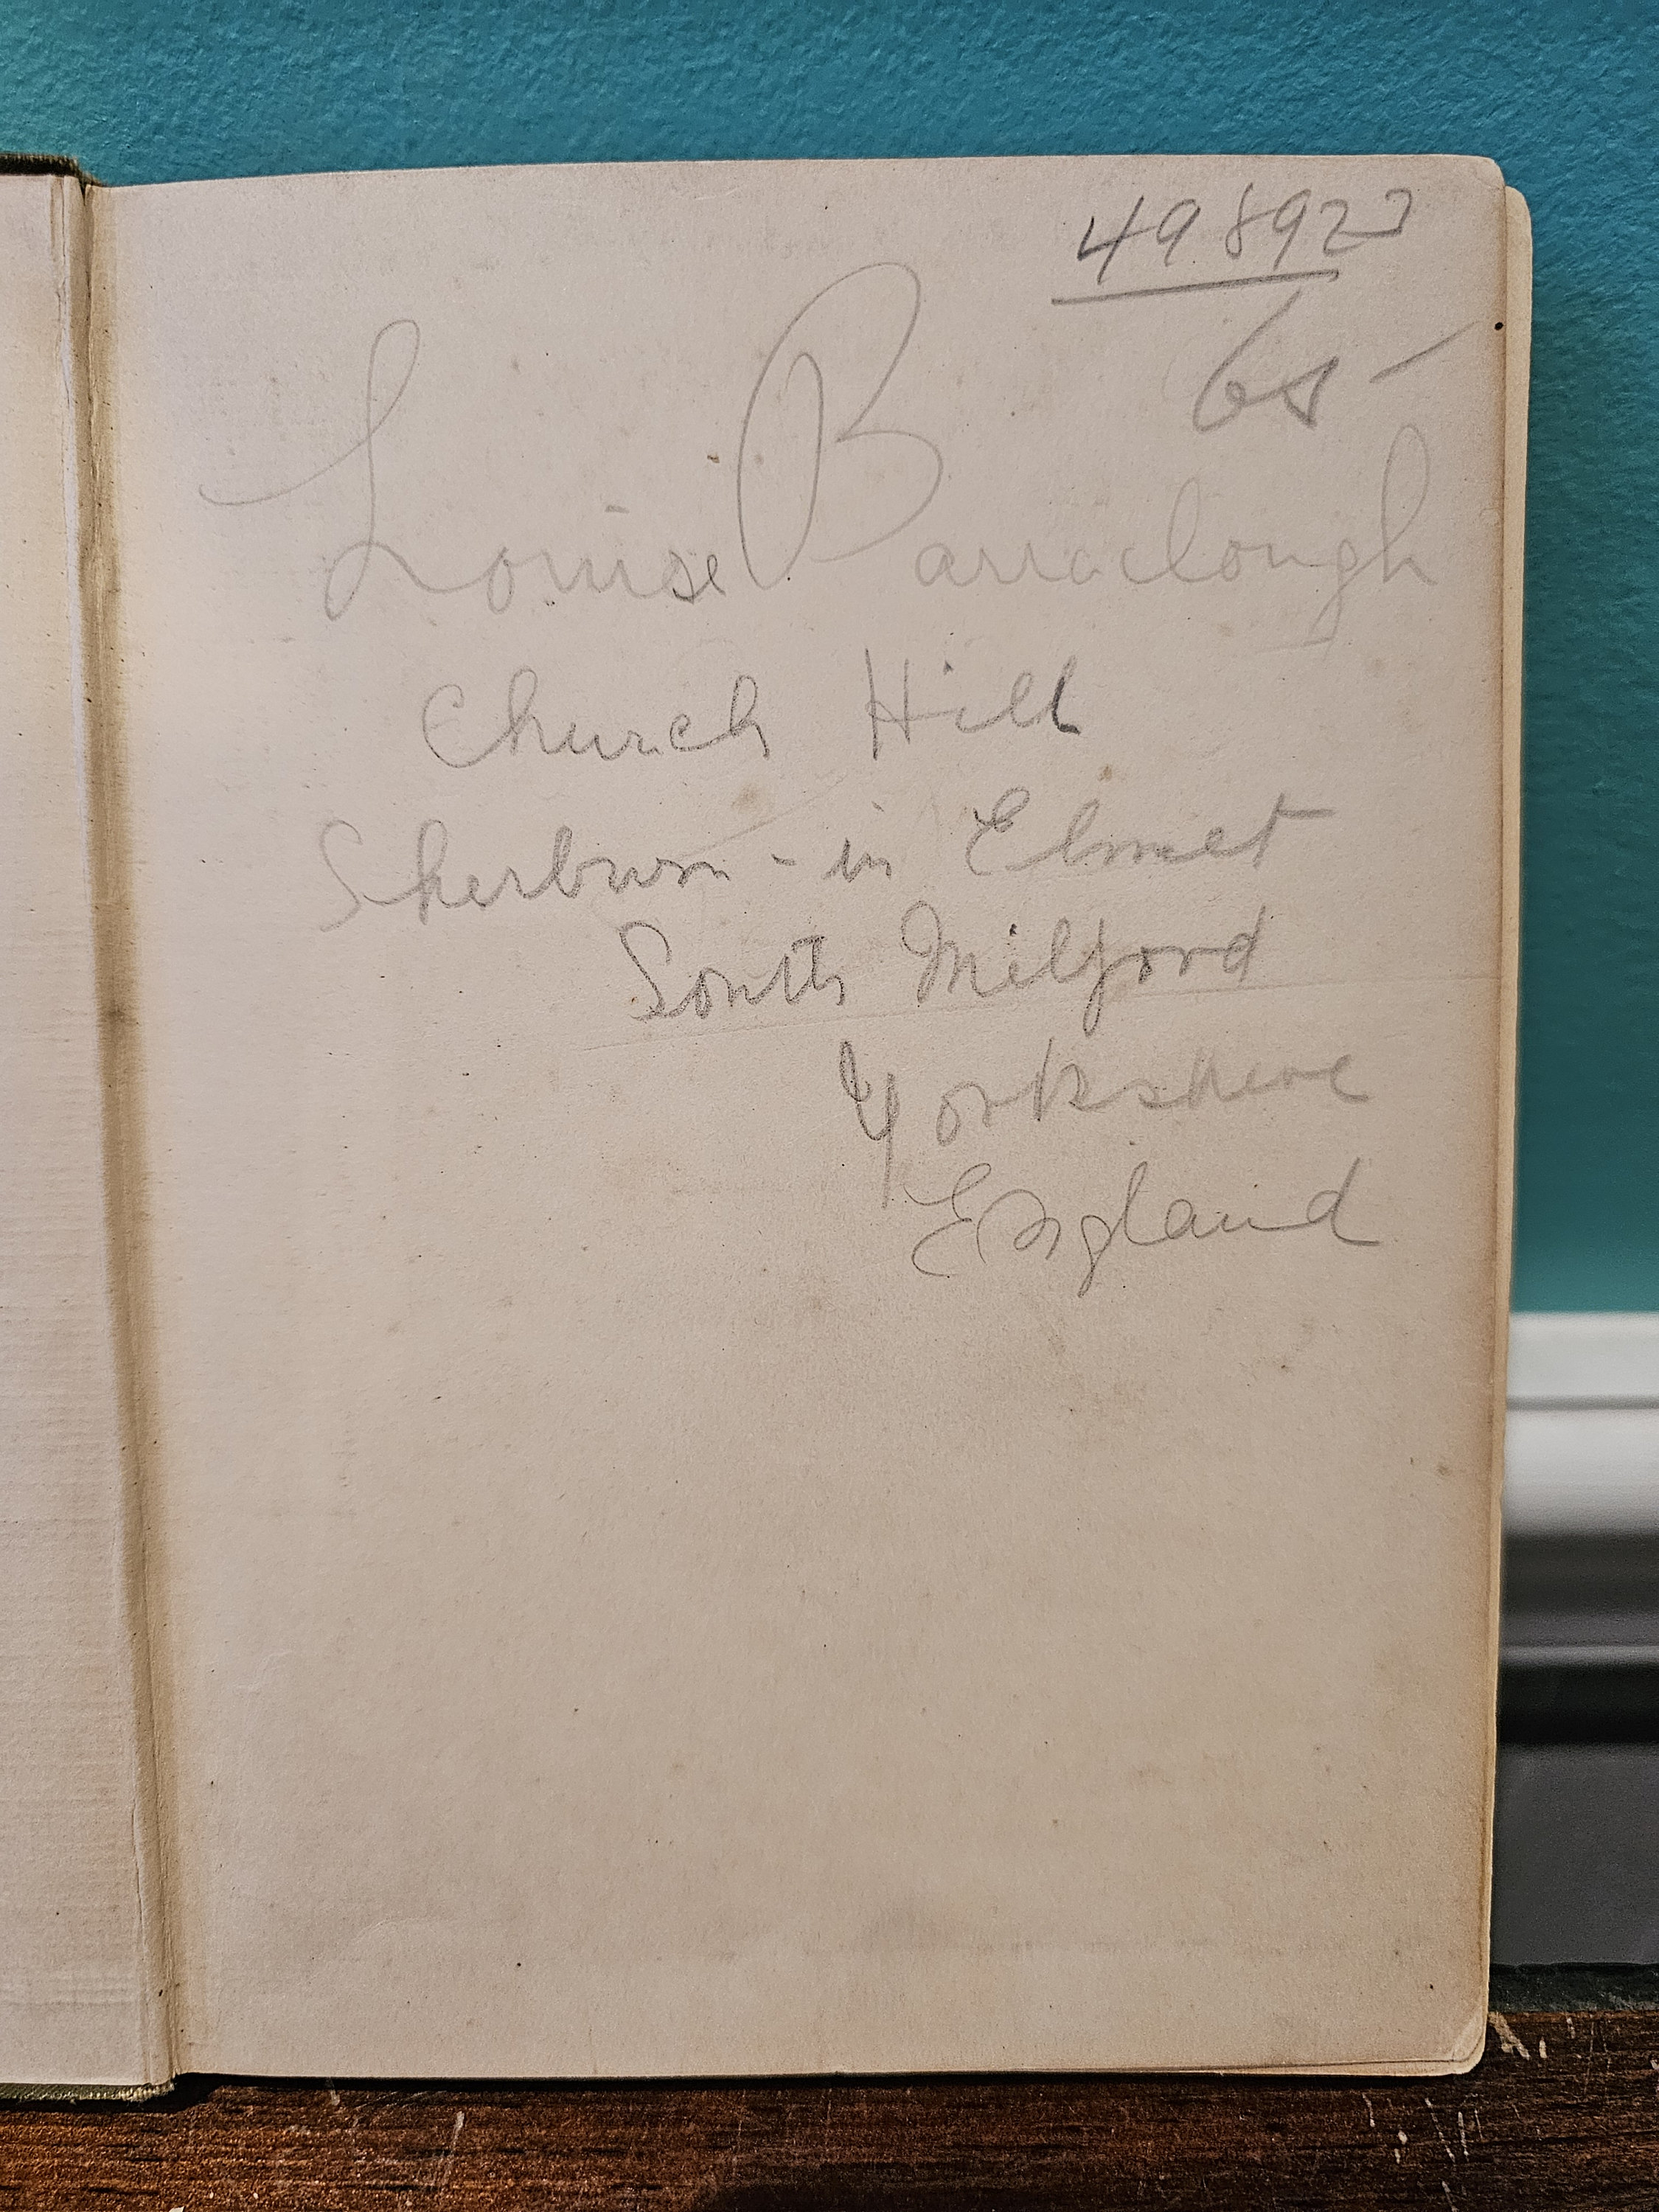 498923
6s -
Louise Barraclough
Church Hill
Sherburn - in Elmet
South Milford
Yorkshire
England